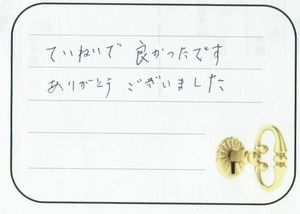 ていねいで 良かったです
ありがとう ございました